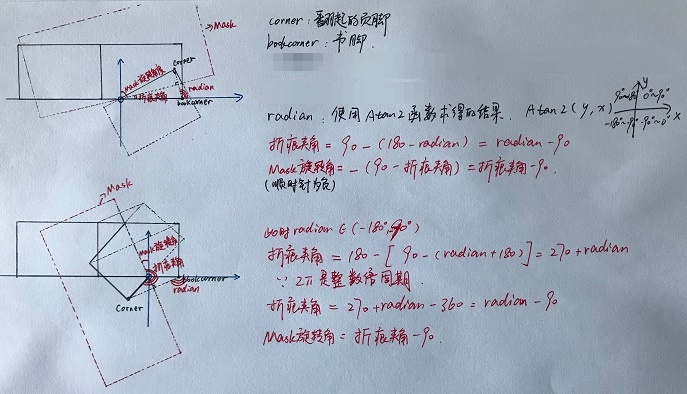 corner：翻起的页脚
bookcorner：书脚.
radian：使用Atan2函数求得的结果. Atan2(y,x)
y
90°~180° 0°~90°
x
-180°~-90° -90°~0°
折痕夹角 = 90 - (180 - radian) = radian - 90
Mask旋转角 = -(90 - 折痕夹角) = 折痕夹角 - 90.
(顺时针为负)
Mask
corner
Mask旋转角度
折痕夹角
radian
bookcorner
此时radian∈(-180°,-90°)
折痕夹角 = 180 - [90 - (radian + 180)] = 270 + radian
∵ 2π是整数倍周期.
折痕夹角 = 270 + radian - 360 = radian - 90
Mask旋转角 = 折痕夹角 - 90.
Mask
Mask旋转角
折痕夹角
bookcorner
radian
corner